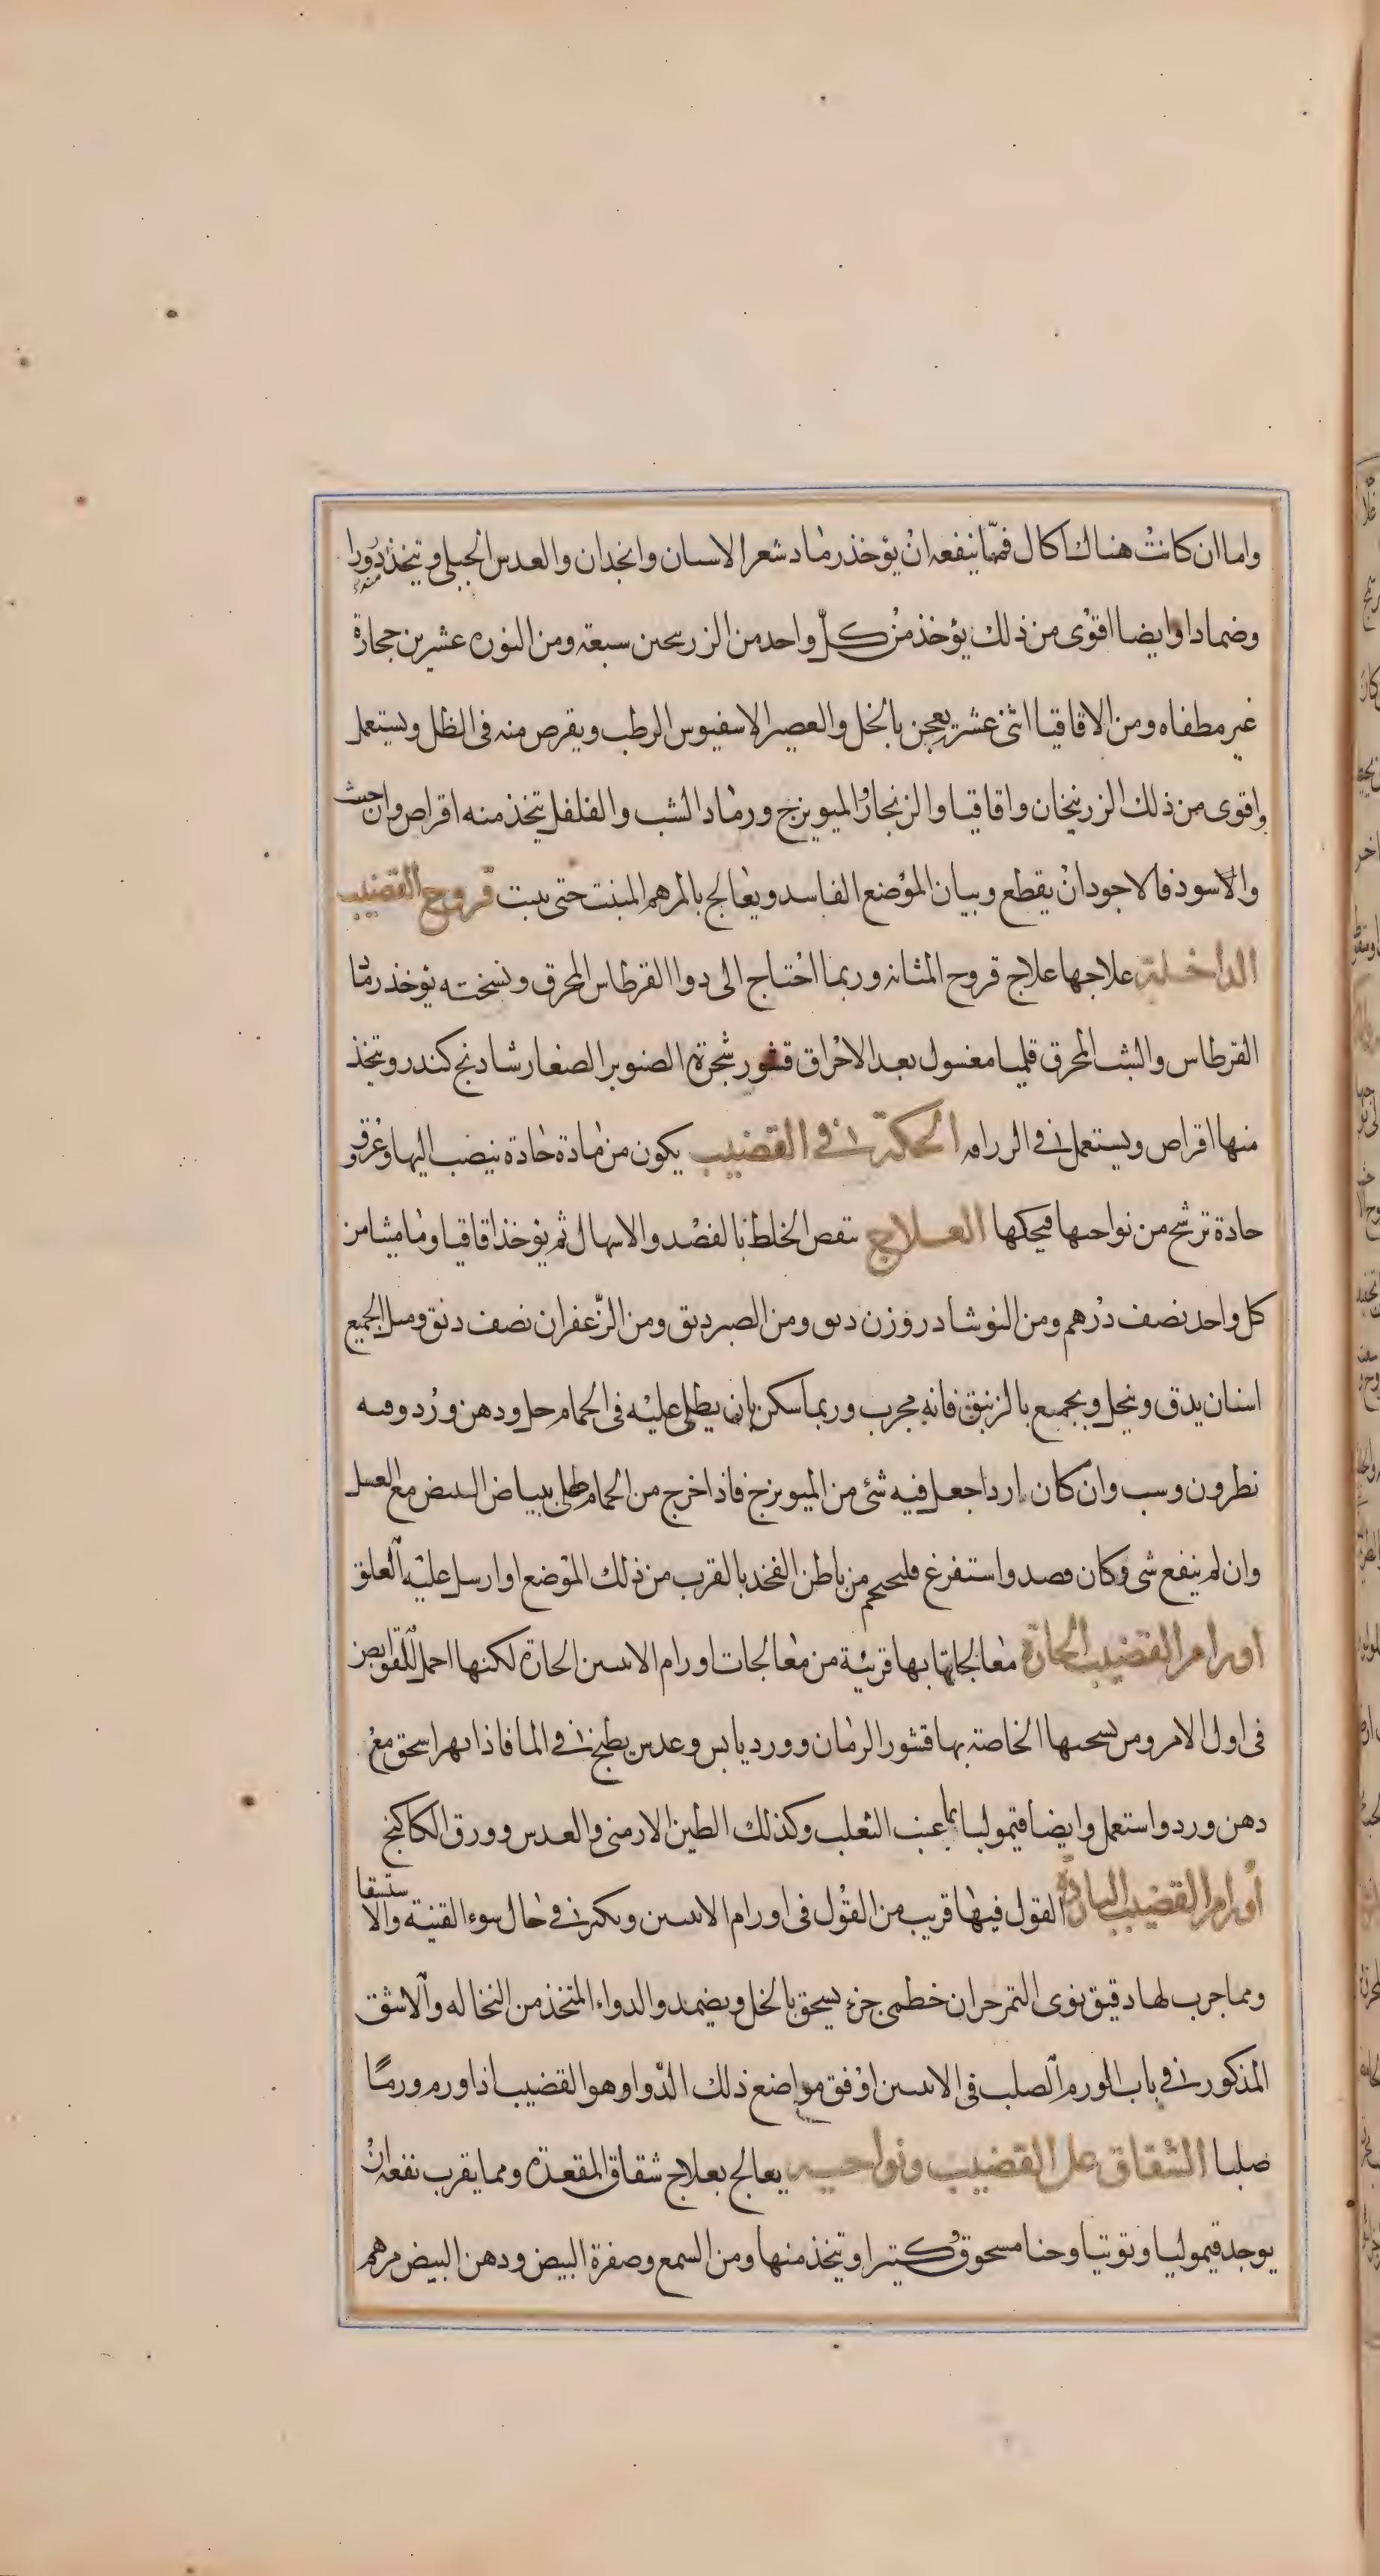 واما ان كانت هناك اكال فمما ينفعه ان يؤخذ رماد شعر الانسان وانجدان والعدس الجبلي ويتخذ ذرورا
وضمادا وايضا اقوى من ذلك يؤخذ من كل واحد من الزرنيخين سبعة ومن النوره عشرين حجارة
غير مطفاه ومن الاقاقيا اثنى عشر يعجن بالخل والعصير الاسفيوس الرطب ويقرص منه في الظل ويستعمل
واقوى من ذلك الزرنيخان واقاقيا والزنجار والميويزج ورماد الشب والفلفل يتخذ منه اقراص وان خبث
والاسود فالاجود ان يقطع وبيان الموضع الفاسد ويعالج بالمرهم المنبت حتى ينبت قروح القضيب
الداخلة علاجها علاج قروح المثانه وربما احتاج الى دوا القرطاس المحرق ونسخته يوخذ رماد
القرطاس والشب المحرق قلميا مغسول بعد الاحراق قشور شجرة الصنوبر الصغار شادنج كندر ويتخذ
منها اقراص ويستعمل في الزراقه الحكة في القضيب يكون من مادة حادة ينصب اليها وعرق
حادة ترشح من نواحيها فيحكها العلاج ينقص الخلط بالفصد والاسهال ثم يوخذ اقاقيا وماميثا من
كل واحد نصف درهم ومن النوشادر وزن دنق ومن الصبر دنق ومن الزعفران نصف دنق ومثل الجميع
اسنان يدق وينخل ويجمع بالزنبق فانه مجرب وربما سكن بان يطلى عليه في الحمام خل ودهن ورد وفيه
نطرون وشب وان كان اردا جعل فيه شئ من الميويزج فاذا خرج من الحمام طلى ببياض البيض مع العسل
وان لم ينفع شى وكان فصد واستفرغ فليحجم من باطن الفخذ بالقرب من ذلك الموضع او ارسل عليه العلق
اورام القضيب الحارة معالجاتها بها قريبة من معالجات اورام الانثيين الحارة لكنها احمل للقوابض
في اول الامر ومن نسخها الخاصة بها قشور الرمان وورد يابس وعدس يطبخ في الما فاذا تهرا سحق مع
دهن ورد واستعمل وايضا قيموليا بما عنب الثعلب وكذلك الطين الارمنى والعدس وورق الكاكنج
اورام القضيب الباردة القول فيها قريب من القول في اورام الانثيين ويكثر في حال سوء القنية والاستسقا
ومما جرب لها دقيق نوى التمر جزان خطمى جزء يسحق بالخل ويضمد والدواء المتخذ من النخاله والاشق
المذكور في باب الورم الصلب في الانثيين اوفق مواضع ذلك الدوا وهو القضيب اذا ورم ورما
صلبا الشقاق على القضيب ونواحيه يعالج بعلاج شقاق المقعدة ومما يقرب نفعه ان
يوجد قيموليا وتوتيا وحنا مسحوق كثيرا ويتخذ منها ومن الشمع وصفرة البيض ودهن البيض مرهم